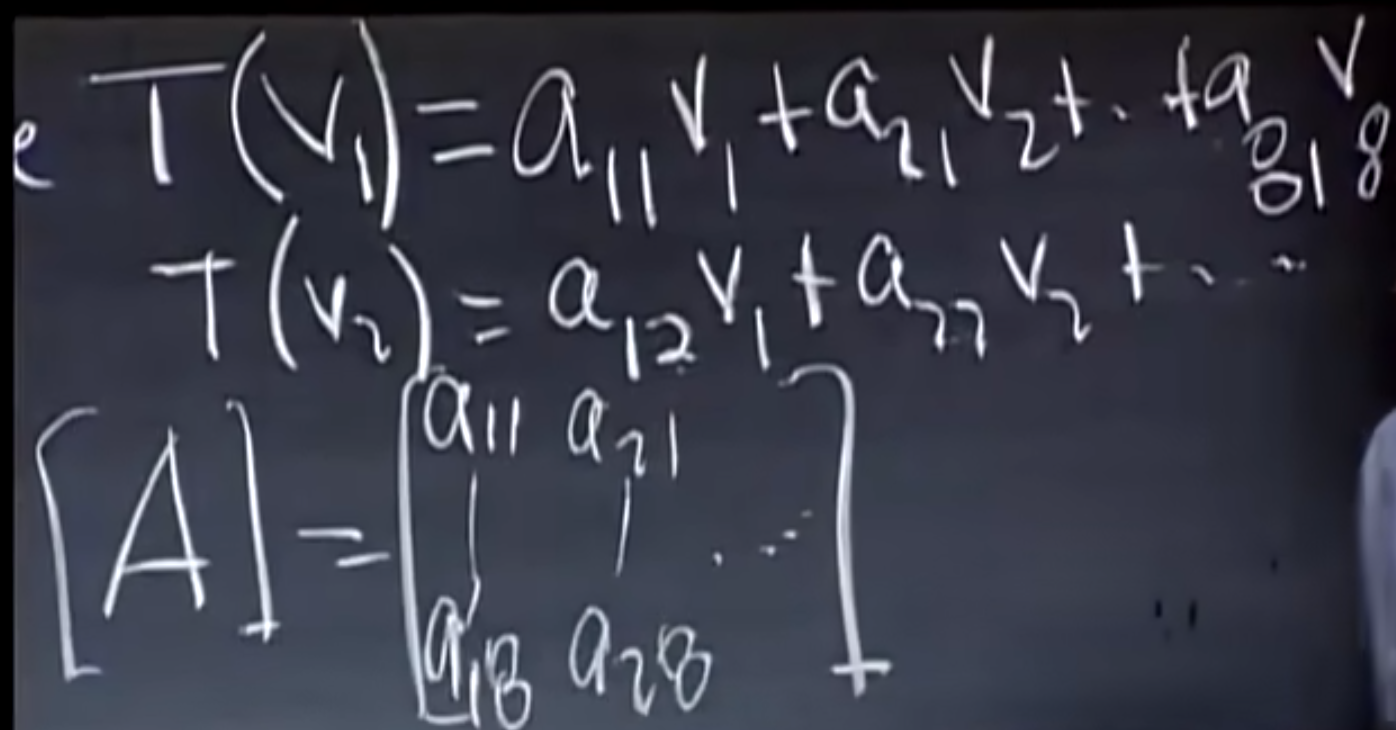 e T(v₁) = a₁₁ v₁ + a₂₁ v₂ + .. + a₈₁ v₈
T(v₂) = a₁₂ v₁ + a₂₂ v₂ + ....
[A] = [a₁₁ a₂₁
...
a₁₈ a₂₈ ]